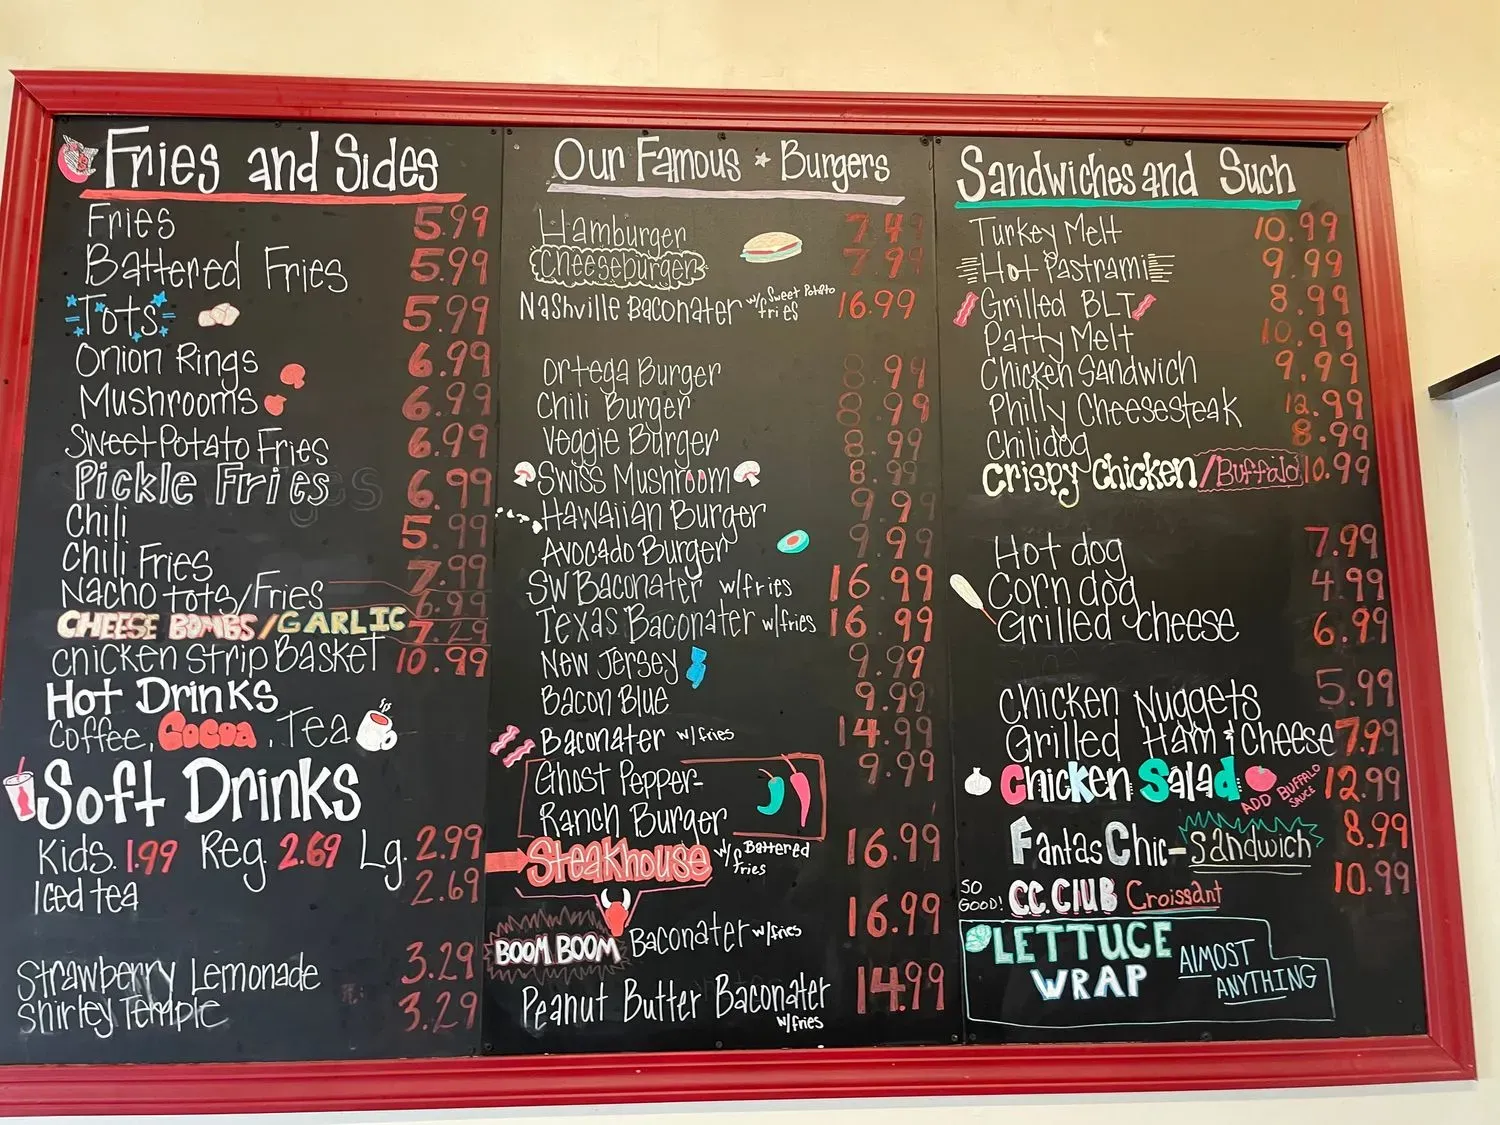 Fries and Sides
Fries 5.99
Battered Fries 5.99
Tots 5.99
Onion Rings 6.99
Mushrooms 6.99
Sweet Potato Fries 6.99
Pickle Fries 6.99
Chili 5.99
Chili Fries 7.99
Nacho tots/Fries 6.99
CHEESE BOMBS/GARLIC 7.29
Chicken Strip Basket 10.99
Hot Drinks
Coffee, Cocoa, Tea
Soft Drinks
Kids. 1.99 Reg. 2.69 Lg. 2.99
Iced tea 2.69
Strawberry Lemonade 3.29
Shirley Temple 3.29
Our Famous Burgers
Hamburger 7.49
Cheeseburger 7.99
Nashville Baconater w/ Sweet Potato fries 16.99
Ortega Burger 8.99
Chili Burger 8.99
Veggie Burger 8.99
Swiss Mushroom 8.99
Hawaiian Burger 9.99
Avocado Burger 9.99
SW Baconater w/fries 16.99
Texas Baconater w/fries 16.99
New Jersey 9.99
Bacon Blue 9.99
Baconater w/fries 14.99
Ghost Pepper- 9.99
Ranch Burger
Steakhouse w/ Battered fries 16.99
BOOM BOOM Baconater w/fries 16.99
Peanut Butter Baconater w/fries 14.99
Sandwiches and Such
Turkey Melt 10.99
Hot Pastrami 9.99
Grilled BLT 8.99
Patty Melt 10.99
Chicken Sandwich 9.99
Philly Cheesesteak 12.99
Chilidog 8.99
Crispy Chicken/Buffalo 10.99
Hot dog 7.99
Corn dog 4.99
Grilled cheese 6.99
Chicken Nuggets 5.99
Grilled Ham & Cheese 7.99
Chicken Salad ADD BUFFALO SAUCE 12.99
FantasChic-Sandwich 8.99
SO GOOD! CC.CLUB Croissant 10.99
LETTUCE WRAP ALMOST ANYTHING